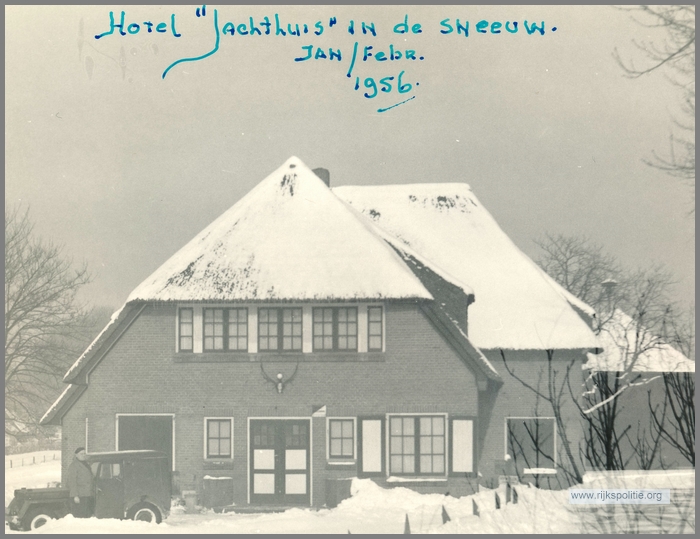 Hotel "Jachthuis" IN de SNeeuw.
JAN/Febr.
1956.
www.rijkspolitie.org